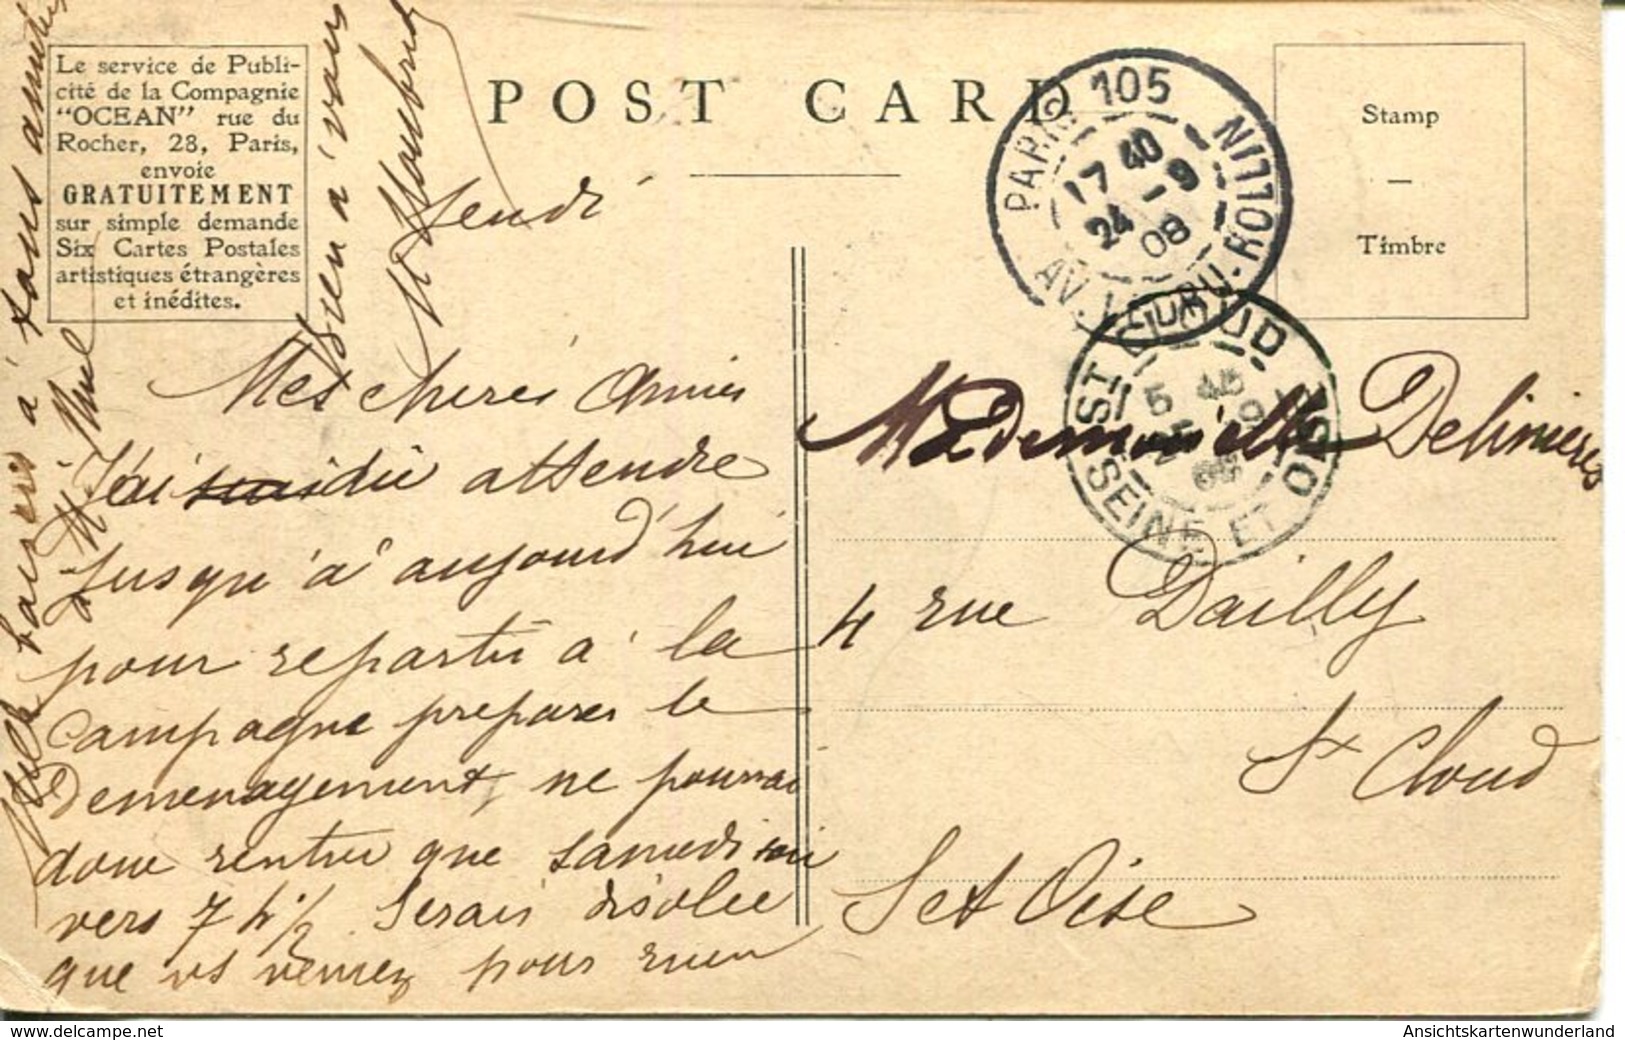 Le service de Publi-
cité de la Compagnie
"OCEAN" rue du
Rocher, 28, Paris,
envoie
GRATUITEMENT
sur simple demande
Six Cartes Postales
artistiques étrangères
et inédites.
POST CARD
Stamp
—
Timbre
PARIS 105
AV. LEDRU-ROLLIN
17 40
24 - 9
08
ST CLOUD
SEINE ET OISE
5
Jeudi
Mes cheres Amies
J'ai dû attendre
jusqu'à aujourd'hui
pour repartir à la
campagne preparer le
demenagement, ne pourrai
donc rentrer que samedi soir
vers 7 h 1/2 Serais désolée
que vs veniez pour rien
baisers à tous amitiés
bien à vous
Mademoiselle Delinieres
4 rue Dailly
St Cloud
S et Oise
www.delcampe.net
Ansichtskartenwunderland